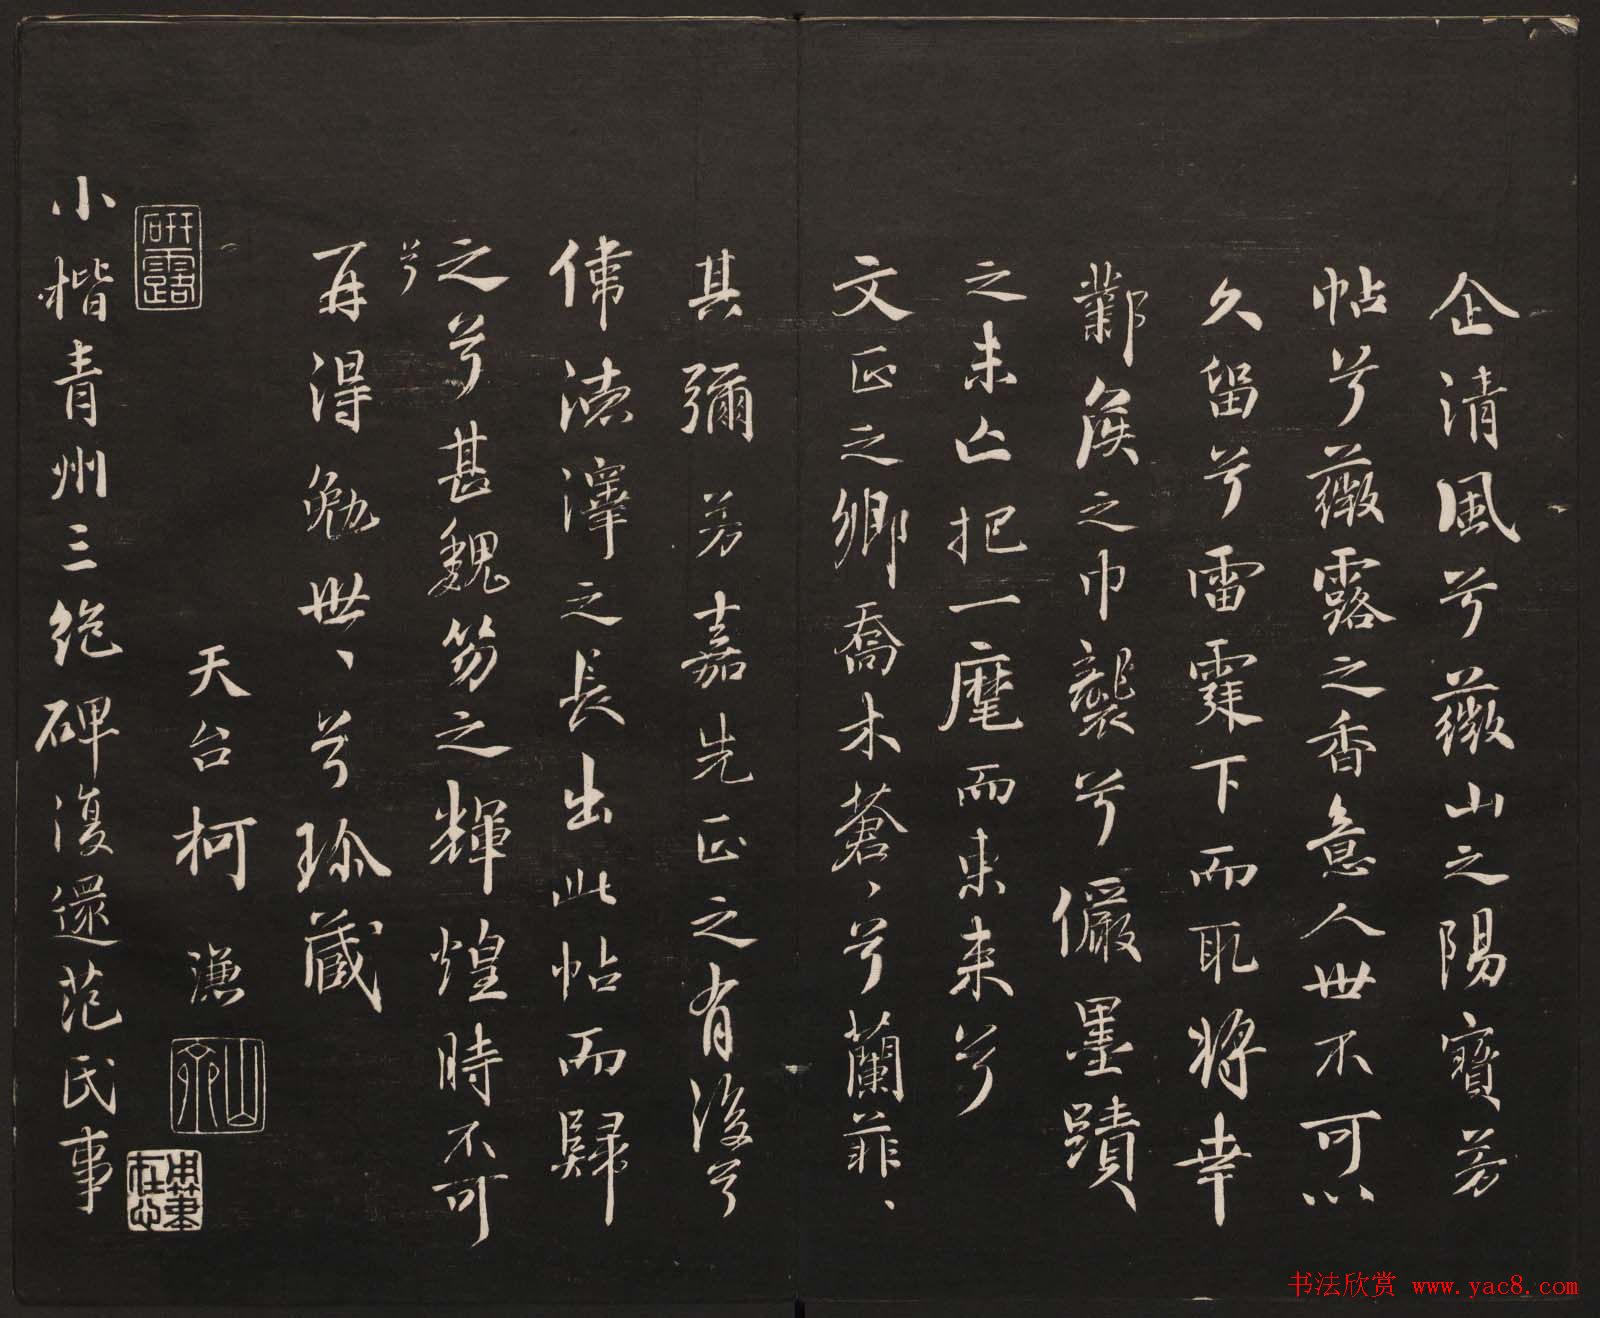 企清風兮薇山之陽寶芳
帖兮薇露之香意人世不可以
久留兮雷霆下而取將幸
鄴侯之巾襲兮儼墨蹟
之未亡把一麾而東来兮
文正之鄉喬木蒼、兮蘭菲、
其彌芳嘉先正之有後兮
偉德澤之長出此帖而歸
之兮甚魏笏之輝煌時不可
兮
再得勉世、兮珍藏
天台柯謙
山齋
用筆在心
研露
小楷青州三絶碑復還范氏事
书法欣赏 www.yac8.com